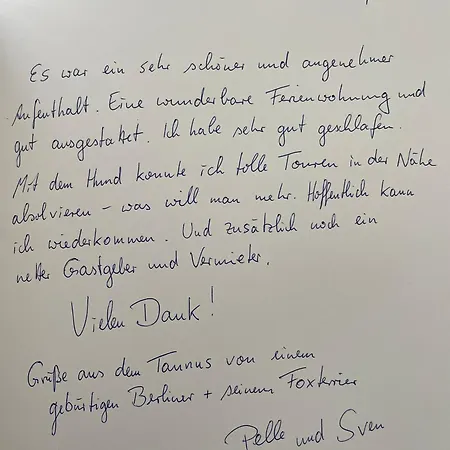 Es war ein sehr schöner und angenehmer
Aufenthalt. Eine wunderbare Ferienwohnung und
gut ausgestattet. Ich habe sehr gut geschlafen.
Mit dem Hund konnte ich tolle Touren in der Nähe
absolvieren – was will man mehr. Hoffentlich kann
ich wiederkommen. Und zusätzlich noch ein
netter Gastgeber und Vermieter.
Vielen Dank!
Grüße aus dem Taunus von einem
gebürtigen Berliner + seinem Foxterrier
Pelle und Sven